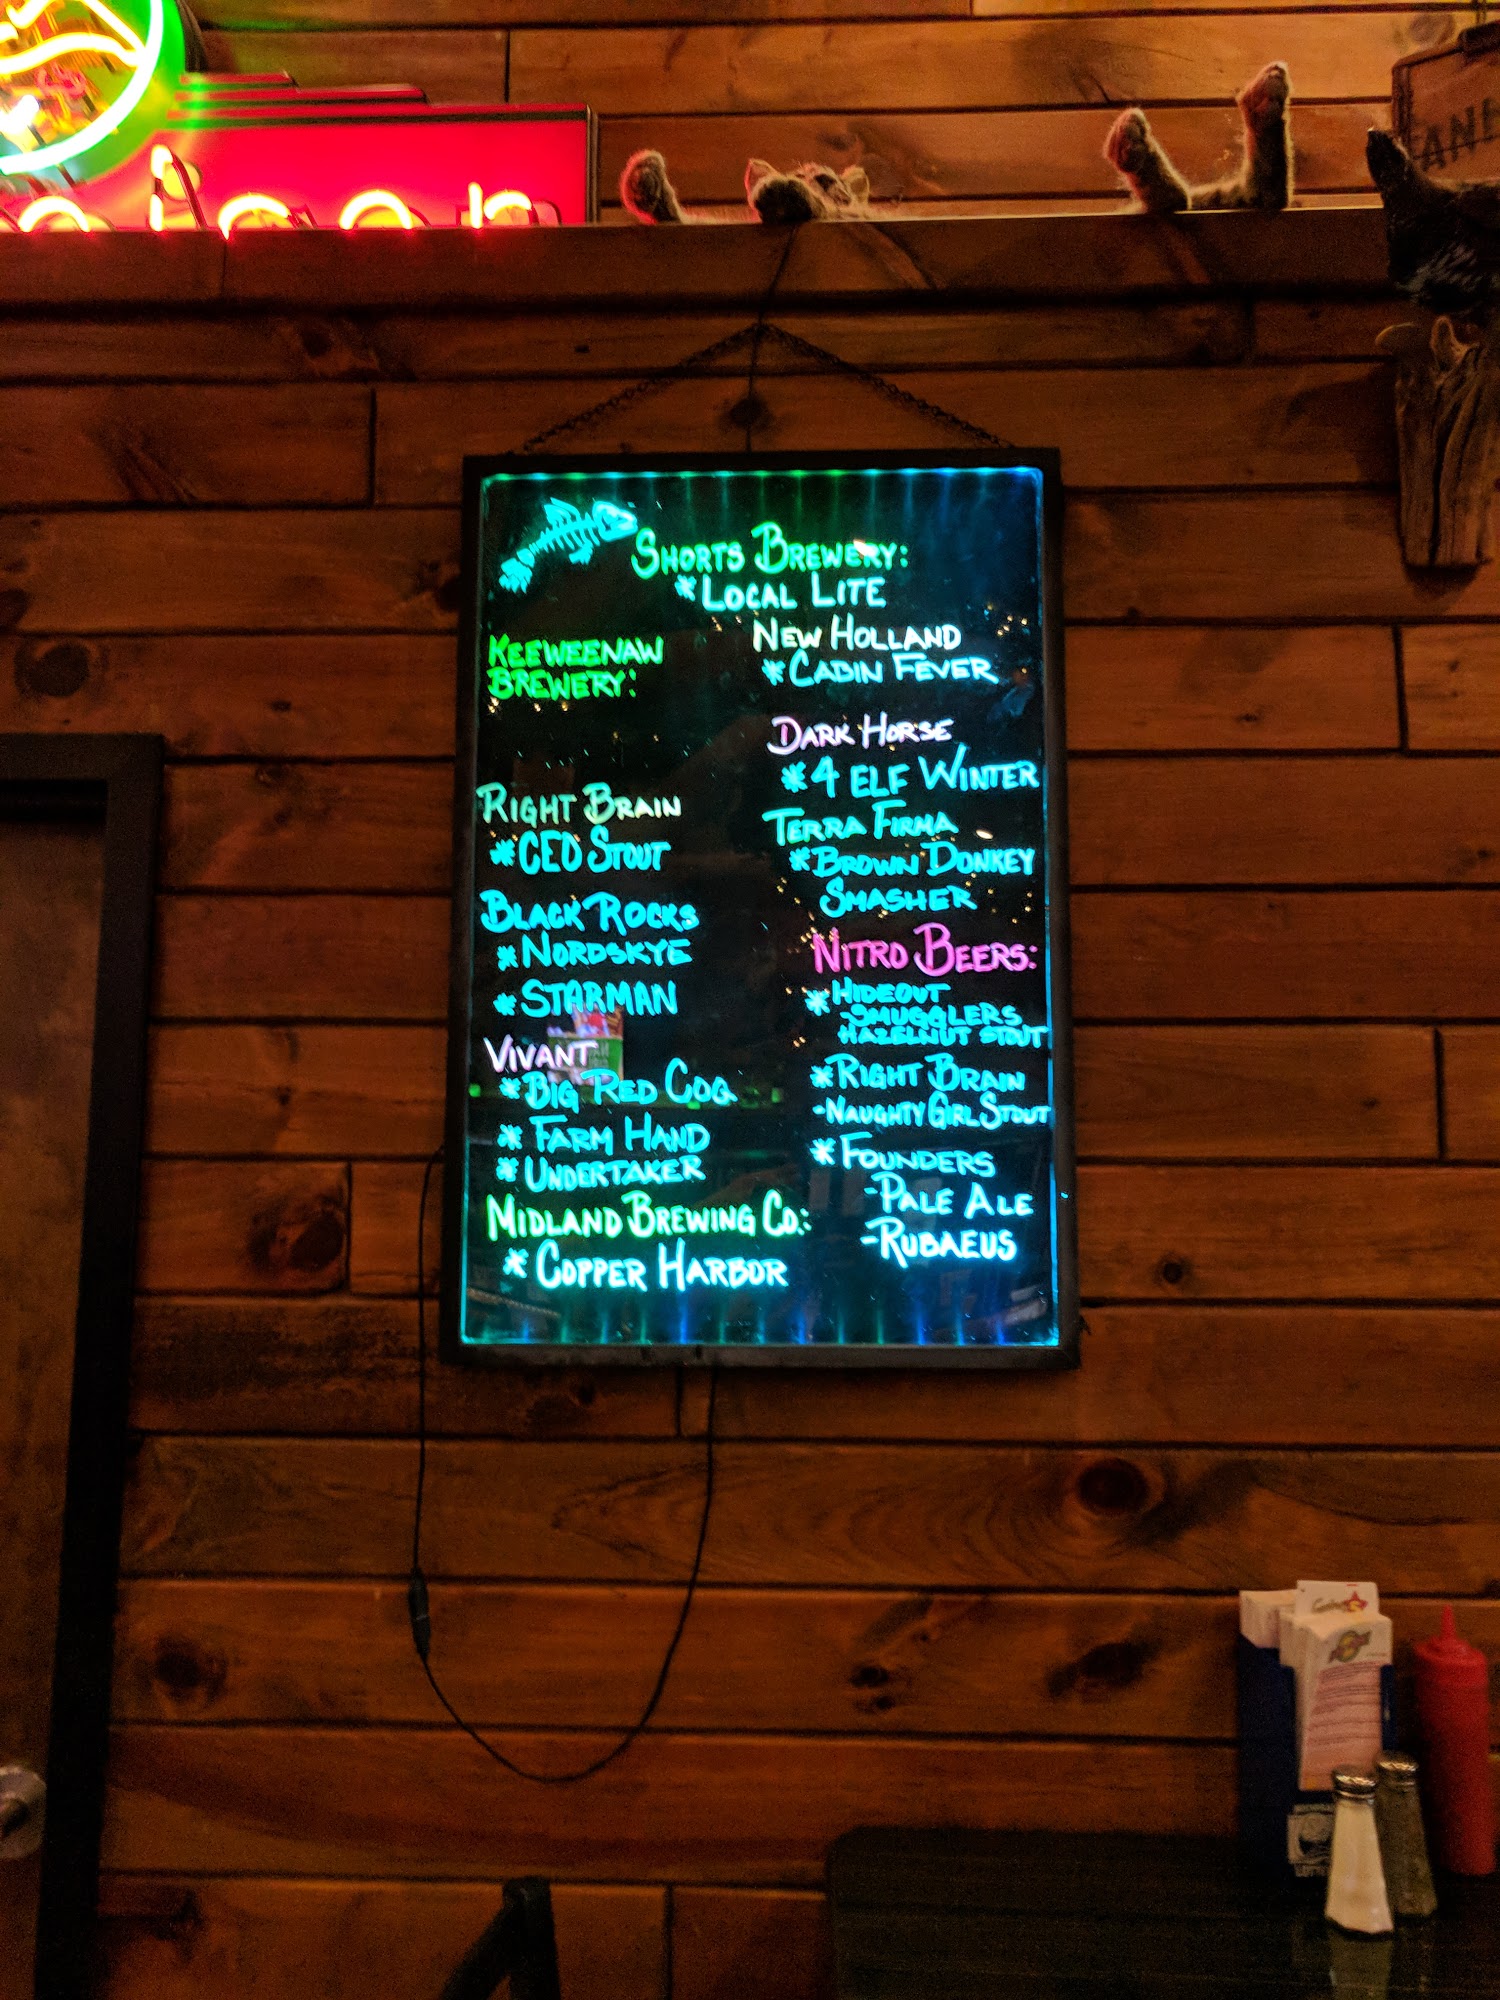 Shorts Brewery:
*Local Lite
Keeweenaw
Brewery:
Right Brain
*CEO Stout
Black Rocks
*Nordskye
*Starman
Vivant
*Big Red Coq
*Farm Hand
*Undertaker
Midland Brewing Co.:
*Copper Harbor
New Holland
*Cabin Fever
Dark Horse
*4 Elf Winter
Terra Firma
*Brown Donkey
Smasher
Nitro Beers:
*Hideout
-Smugglers
Hazelnut Stout
*Right Brain
-Naughty Girl Stout
*Founders
-Pale Ale
-Rubaeus